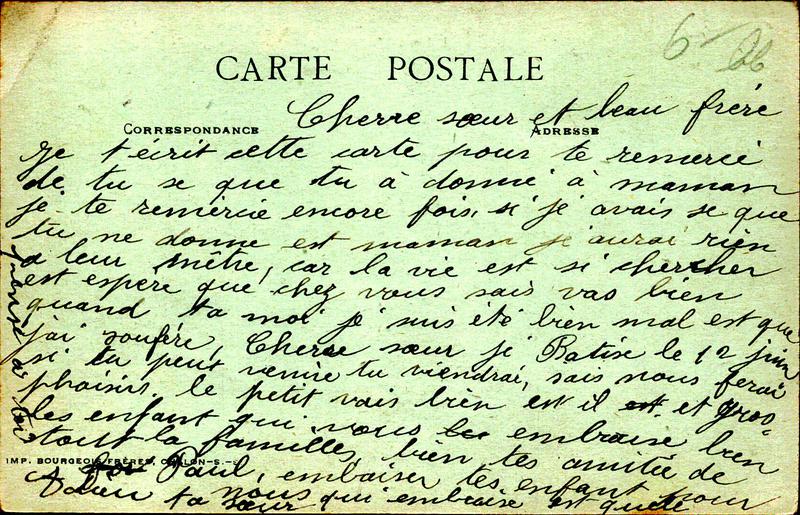 CARTE POSTALE
CORRESPONDANCE
ADRESSE
Cherre sœur et beau frére
je t écrit cette carte pour te remercié
de tu se que tu à donné à maman
je te remércie encore fois. si je avais se que
tu ne donne est maman j'aurai rien
a leur mêtre, car la vie est si chercher
est espère que chez vous sais vas bien
quand ta moi je suis été bien mal est que
j'ai soufére, Cherre sœur je Batise le 12 juin
si tu peut venire tu viendrai, sais nous ferai
plaisir. le petit vais bien est il et gros
les enfant qui vous embraise bien
tout la familles, bien tes amitié de
Paul, embaiser tes enfant pour
nous
Adieu ta sœur qui embraise est
pense a toi
IMP. BOURGEOIS FRÈRES, CHALON-S.-S.